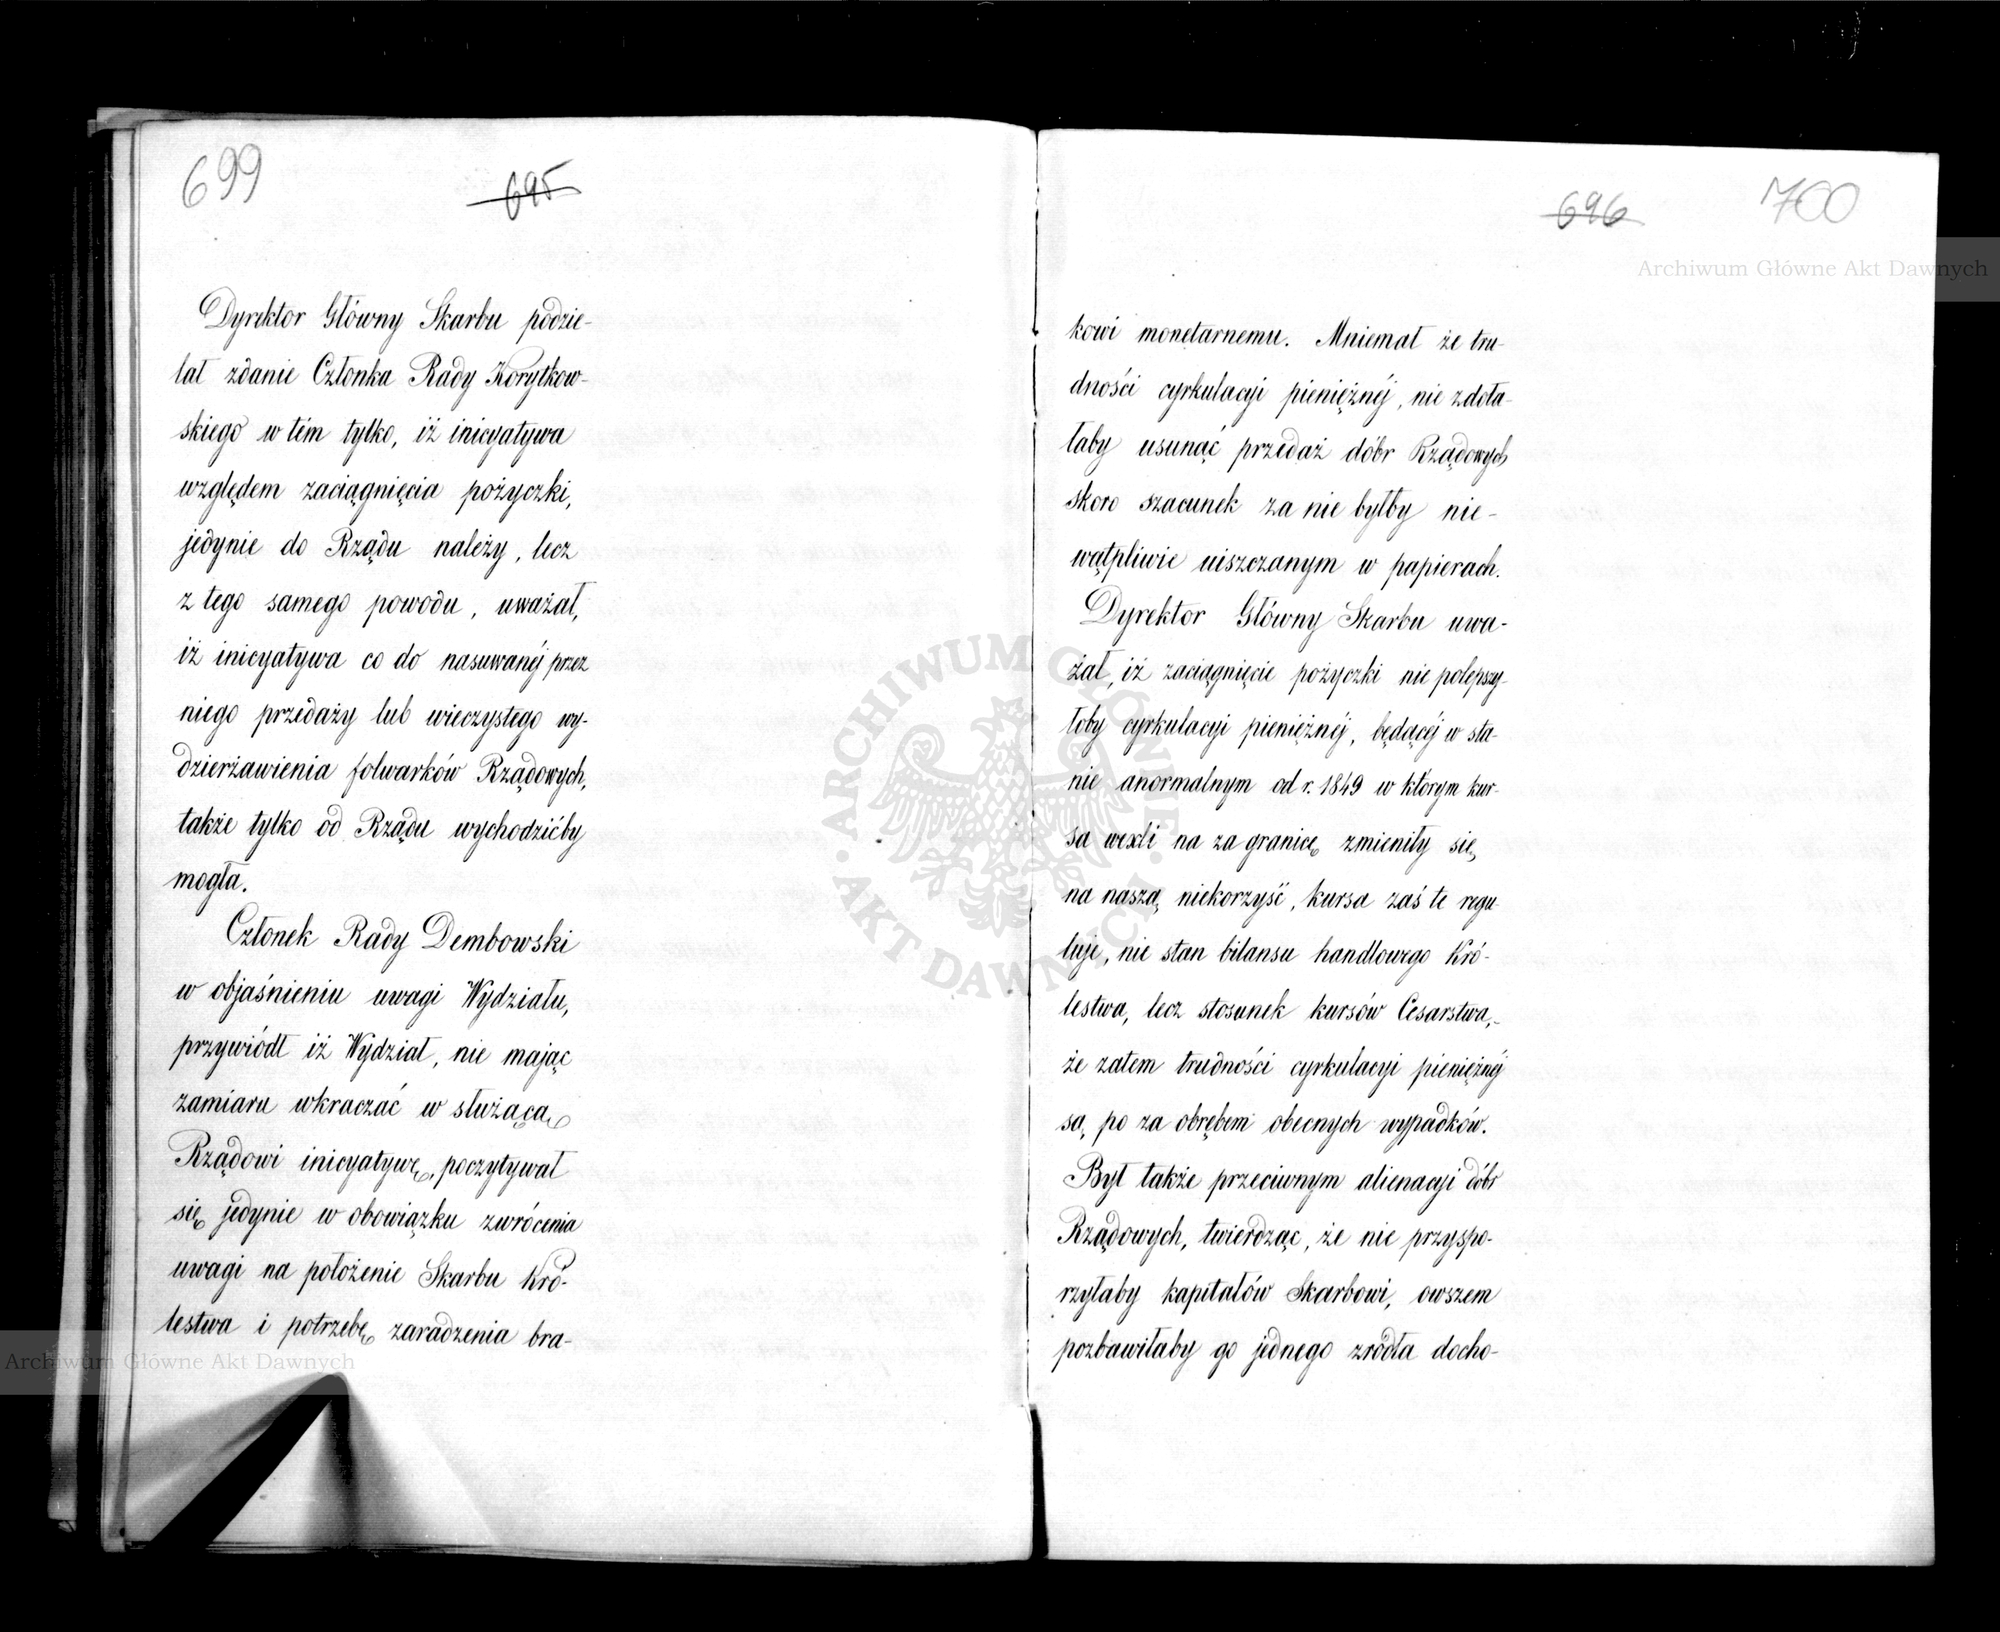 699
695
Dyrektor Główny Skarbu podzie-
lał zdanie Członka Rady Korytkow-
skiego w tem tylko, iż inicyatywa
względem zaciągnięcia pożyczki,
jedynie do Rządu należy, lecz
z tego samego powodu, uważał,
iż inicyatywa co do nasuwanéj przez
niego przedaży lub wieczystego wy-
dzierżawienia folwarków Rządowych,
także tylko od Rządu wychodzićby
mogła.
Członek Rady Dembowski
w objaśnieniu uwagi Wydziału,
przywiódł iż Wydział, nie mając
zamiaru wkraczać w służącą
Rządowi inicyatywę, poczytywał
się jedynie w obowiązku zwrócenia
uwagi na położenie Skarbu Kró-
lestwa i potrzebę zaradzenia bra-
696
700
kowi monetarnemu. Mniemał że tru-
dności cyrkulacyi pieniężnéj, nie zdoła-
łaby usunąć przedaż dóbr Rządowych
skoro szacunek za nie byłby nie-
wątpliwie uiszczanym w papierach.
Dyrektor Główny Skarbu uwa-
żał, iż zaciągnięcie pożyczki nie polepszy-
łoby cyrkulacyi pieniężnéj, będącéj w sta-
nie anormalnym od r. 1849 w którym kur-
sa wexli na za granicę zmieniły się
na naszą niekorzyść, kursa zaś te regu-
luje, nie stan bilansu handlowego Kró-
lestwa, lecz stosunek kursów Cesarstwa,-
że zatem trudności cyrkulacyi pieniężnéj
są, po za obrębem obecnych wypadków.
Był także przeciwnym alienacyi dóbr
Rządowych, twierdząc, że nie przyspo-
rzyłaby kapitałów Skarbowi, owszem
pozbawiłaby go jednego źródła docho-
Archiwum Główne Akt Dawnych
ARCHIWUM GŁÓWNE · AKT DAWNYCH ·
Archiwum Główne Akt Dawnych